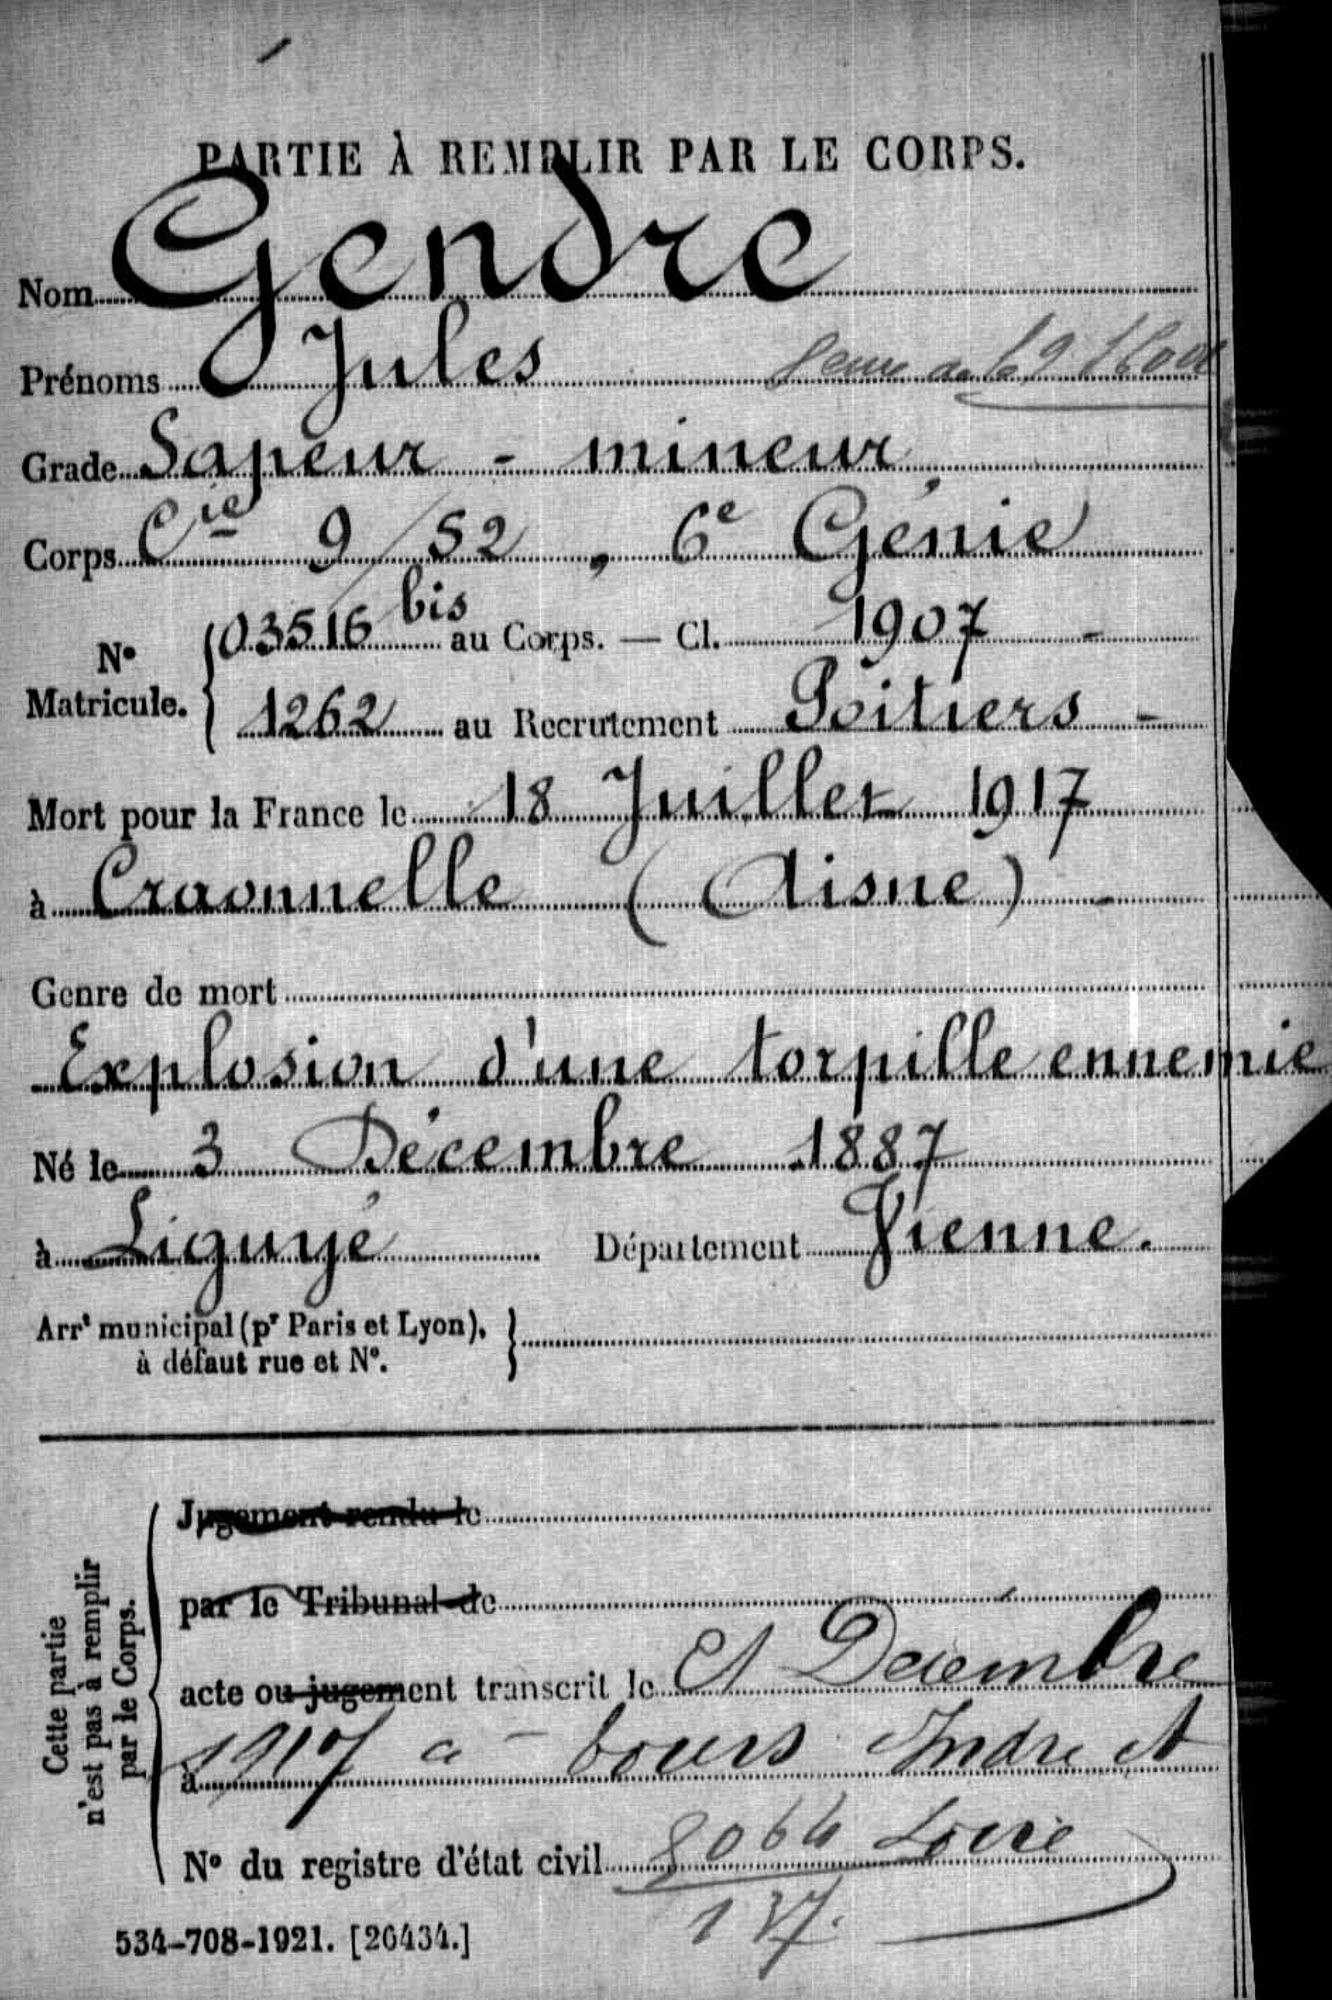 PARTIE À REMPLIR PAR LE CORPS.
Nom Gendre
Prénoms Jules
Grade Sapeur - mineur
Corps Cie 9/52, 6e Génie
No Matricule. { 03516 bis au Corps. — Cl. 1907 -
1262 au Recrutement Poitiers -
Mort pour la France le 18 Juillet 1917
à Craonnelle (Aisne) -
Genre de mort
Explosion d'une torpille ennemie
Né le 3 Décembre 1887
à Ligugé Département Vienne.
Arrt municipal (pr Paris et Lyon), }
à défaut rue et No.
Cette partie
n'est pas à remplir
par le Corps.
Jugement rendu le
par le Tribunal de
acte ou jugement transcrit le Décembre
à 1917 a Tours Indre et
No du registre d'état civil Loire
137.
534-708-1921. [26434.]